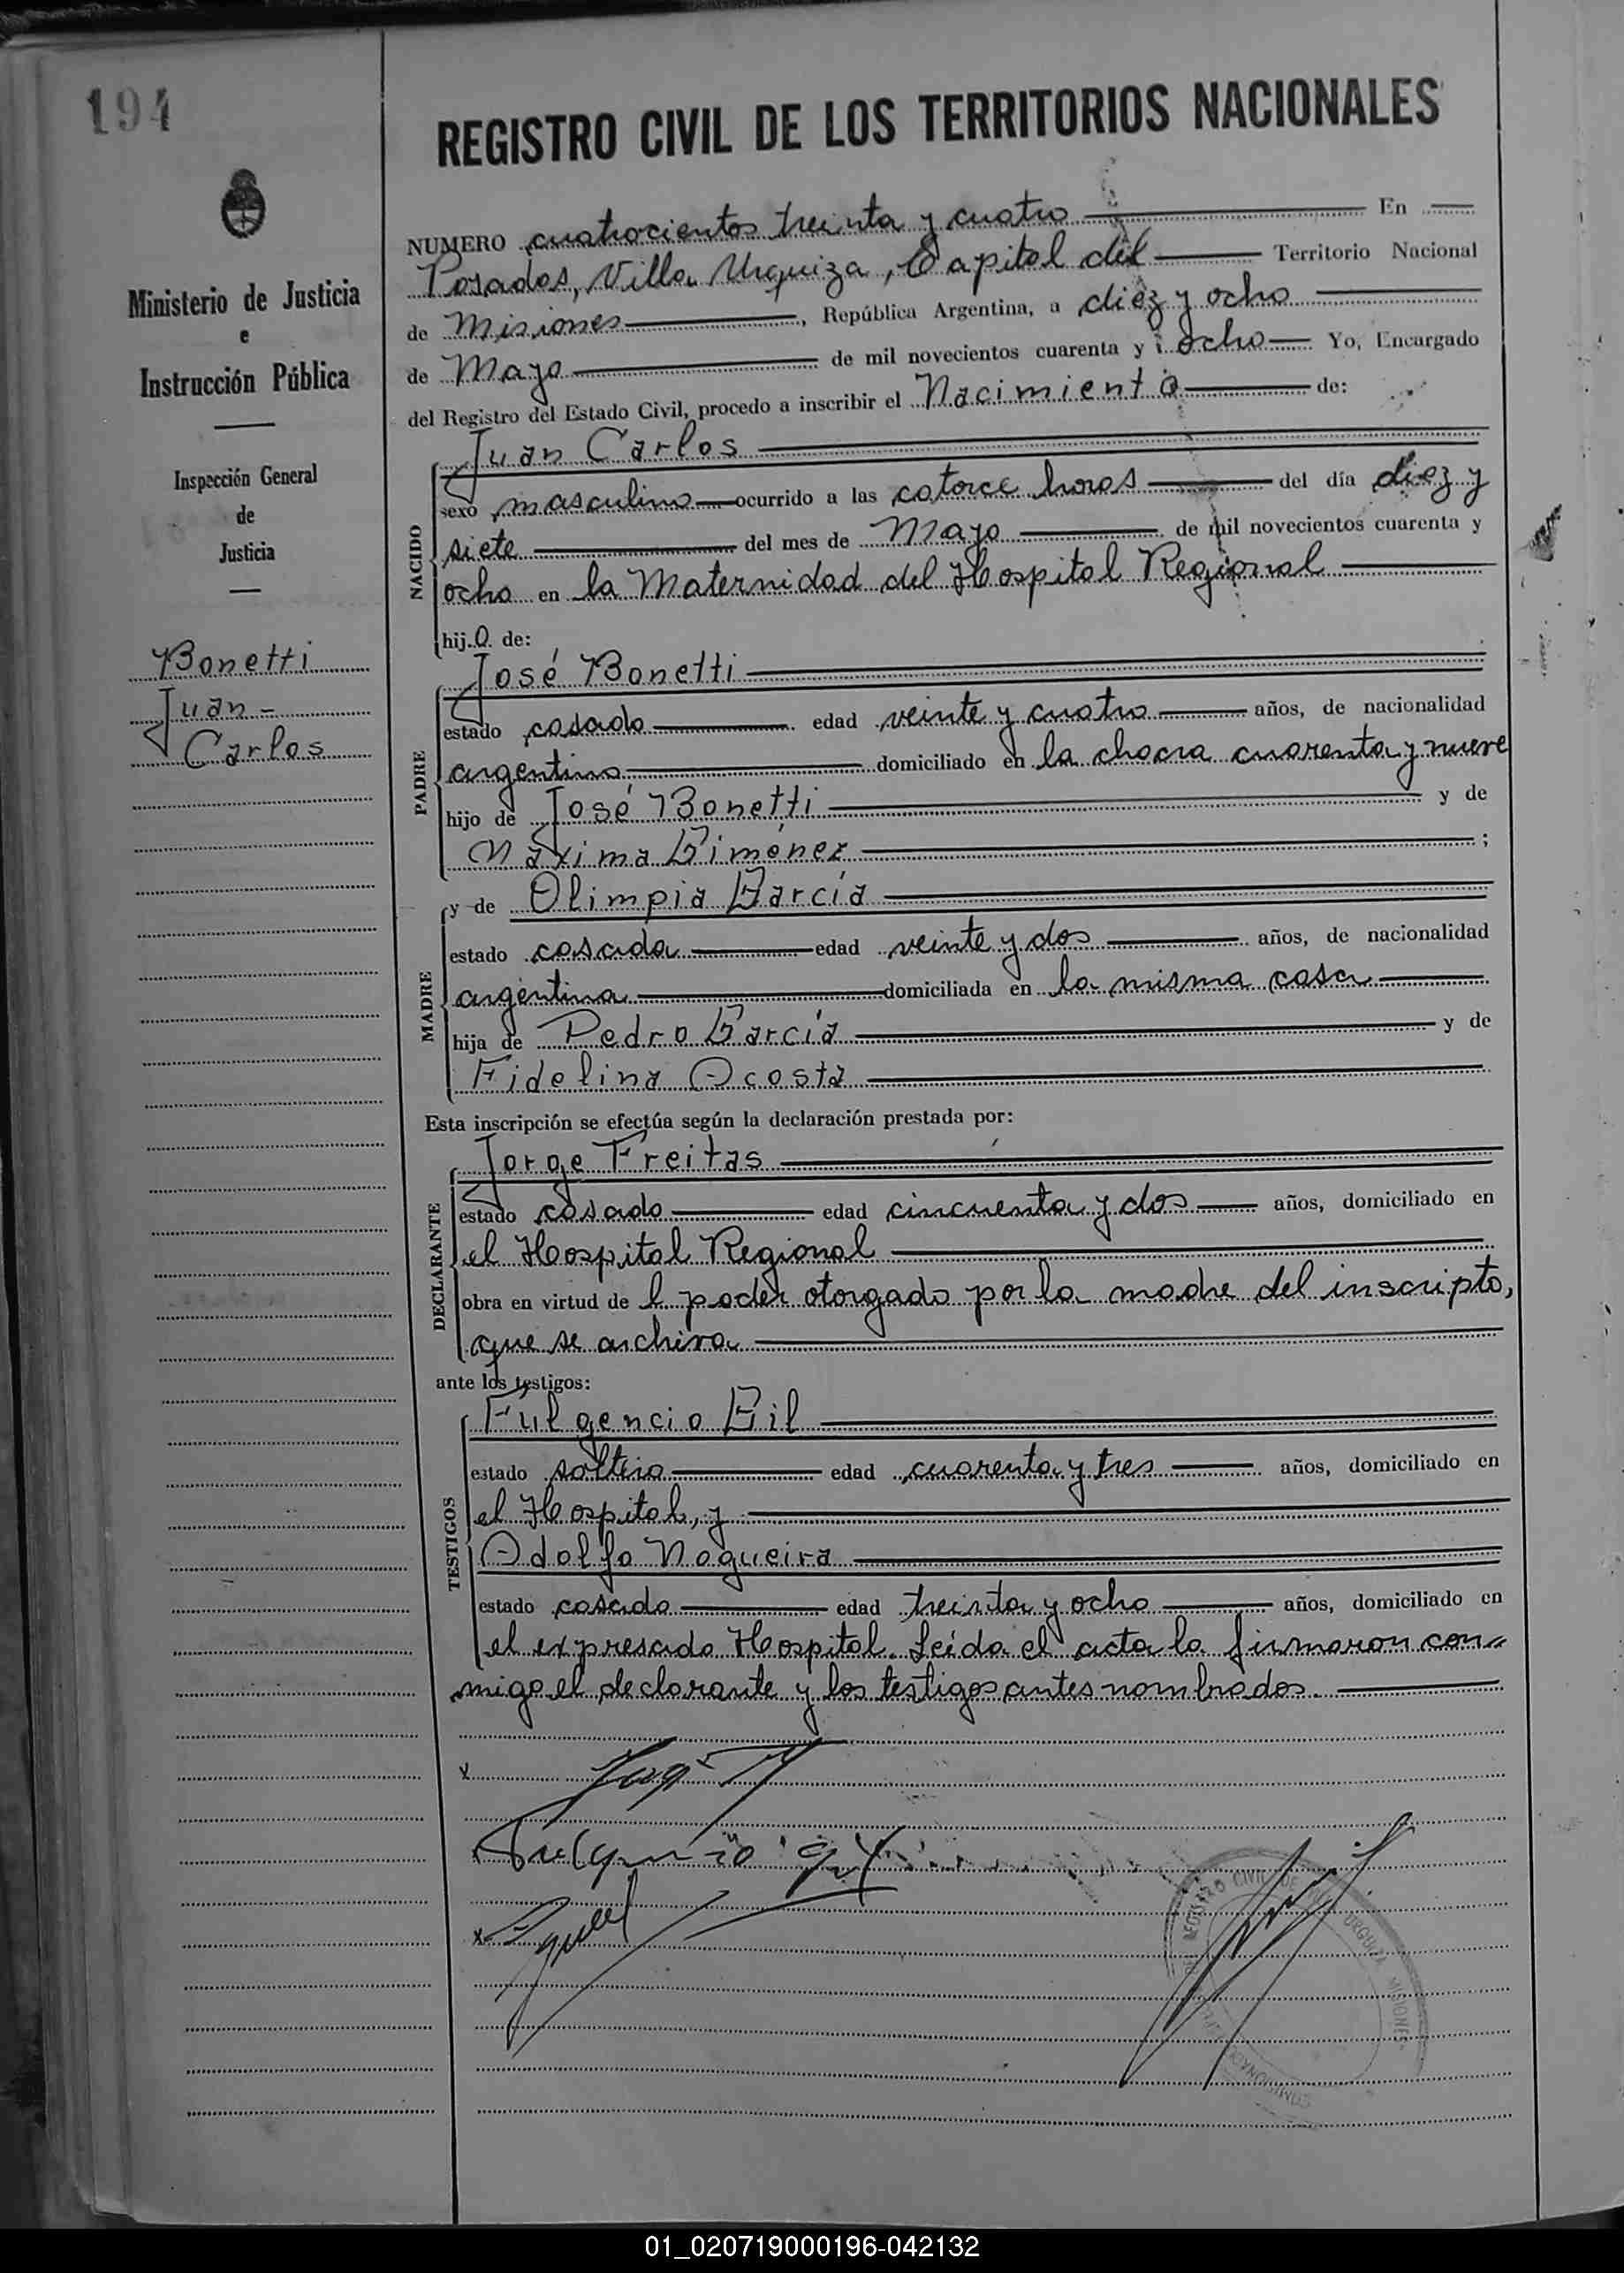 194
REGISTRO CIVIL DE LOS TERRITORIOS NACIONALES
Ministerio de Justicia
e
Instrucción Pública
Inspección General
de
Justicia
Bonetti
Juan -
Carlos
NUMERO cuatrocientos treinta y cuatro En
Posadas, Villa Urquiza, Capital del Territorio Nacional
de Misiones, República Argentina, a diez y ocho
de Mayo de mil novecientos cuarenta y ocho Yo, Encargado
del Registro del Estado Civil, procedo a inscribir el Nacimiento de:
NACIDO
Juan Carlos
sexo masculino ocurrido a las catorce horas del día diez y
siete del mes de Mayo de mil novecientos cuarenta y
ocho en la Maternidad del Hospital Regional
hijo de:
PADRE
José Bonetti
estado casado edad veinte y cuatro años, de nacionalidad
argentino domiciliado en la chacra cuarenta y nueve
hijo de José Bonetti y de
Máxima Giménez ;
MADRE
y de Olimpia García
estado casada edad veinte y dos años, de nacionalidad
argentina domiciliada en la misma casa
hija de Pedro García y de
Fidelina Acosta
Esta inscripción se efectúa según la declaración prestada por:
DECLARANTE
Jorge Freitas
estado casado edad cincuenta y dos años, domiciliado en
el Hospital Regional
obra en virtud de l poder otorgado por la madre del inscripto,
que se archiva
ante los testigos:
TESTIGOS
Fulgencio Gil
estado soltero edad cuarenta y tres años, domiciliado en
el Hospital, y
Adolfo Nogueira
estado casado edad treinta y ocho años, domiciliado en
el expresado Hospital. Leída el acta la firmaron con=
migo el declarante y los testigos antes nombrados.
x
Fulgencio Gil
x
REGISTRO CIVIL DE URQUIZA MISIONES
01_020719000196-042132